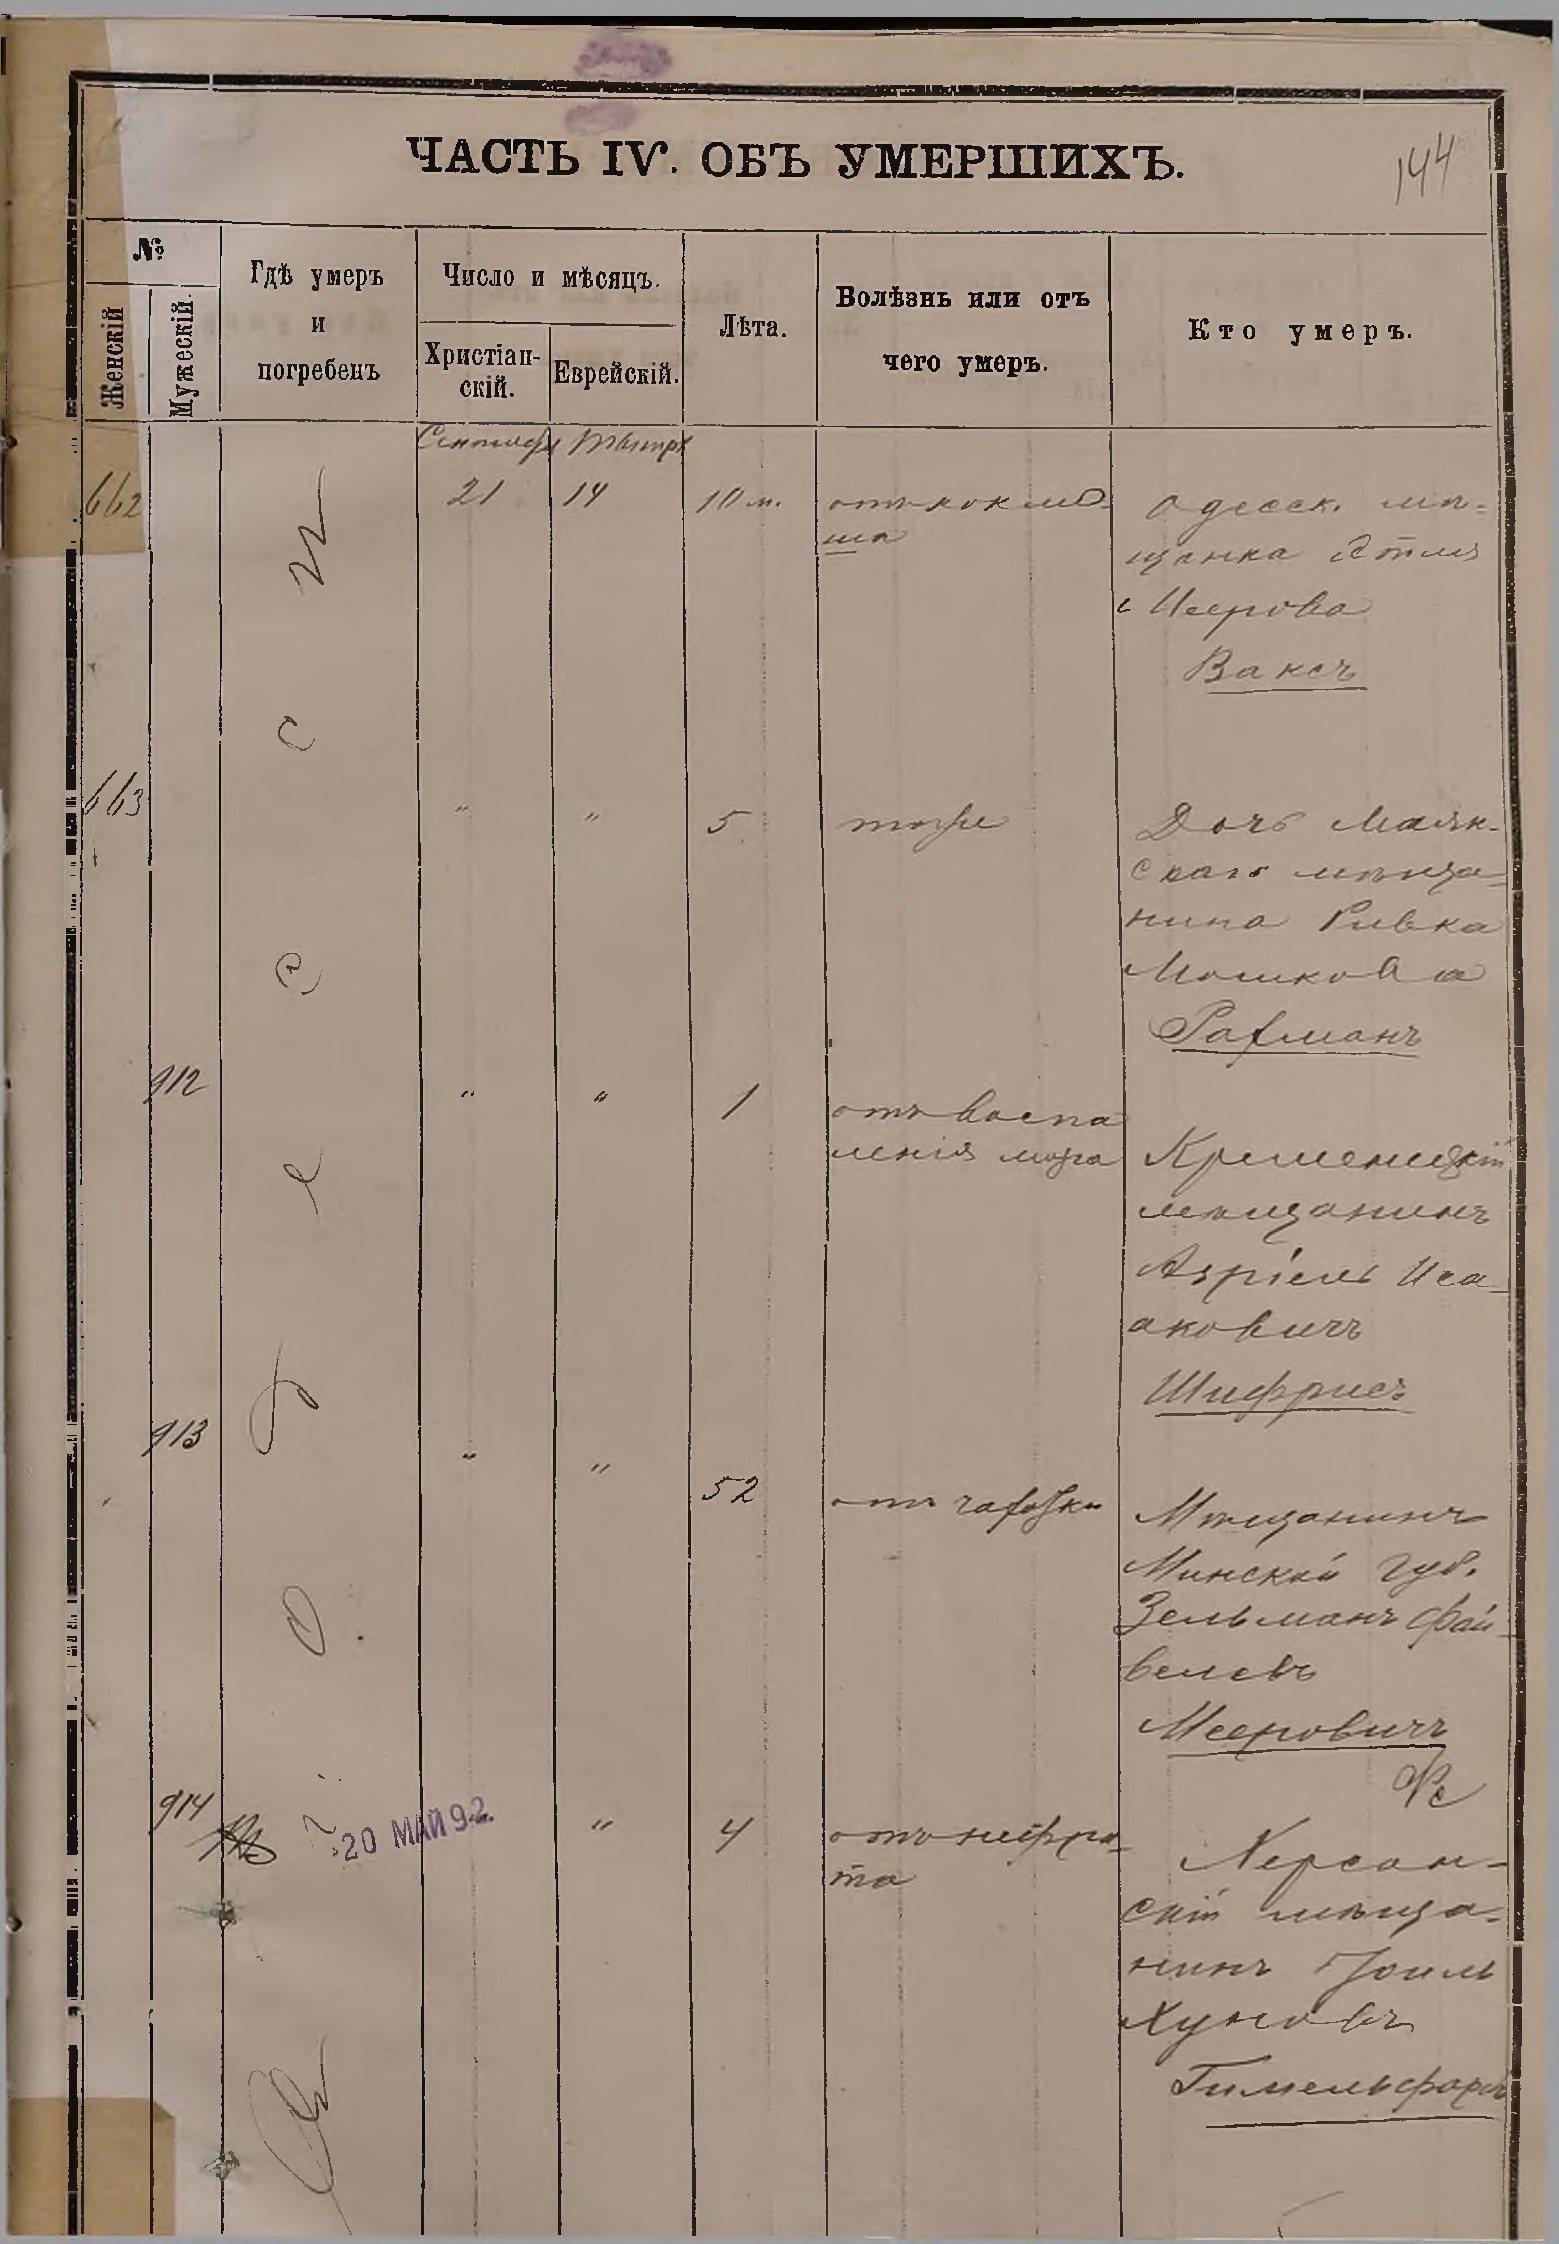 ЧАСТЬ IV. ОБЪ УМЕРШИХЪ.
144
№
Женскій
Мужескій.
Гдѣ умеръ
и
погребенъ
Число и мѣсяцъ.
Христіан-
скій.
Еврейскій.
Лѣта.
Болѣзнь или отъ
чего умеръ.
Кто умеръ.
Тишри
662
21
14
10 м.
отъ коклю-
ша
Одесск. мѣ-
щанка Этля
Меерова
Ваксъ
663
"
"
5
тоже
Дочь Маяк-
скаго мѣща-
нина Ривка
Мошкова
Рахманъ
912
"
"
1
отъ воспа
ленія мозга
Кременецкій
мѣщанинъ
Азріель Иса-
аковичъ
Шифрисъ
913
"
"
52
отъ чахотки
Мѣщанинъ
Минской губ.
Зельманъ Фай-
велевъ
Мееровичъ
914
20 МАЙ 92.
"
4
отъ нефри-
та
Херсон-
скій мѣща-
нинъ Іоиль
Хуновъ
Гимельфарбъ
въ Одессѣ